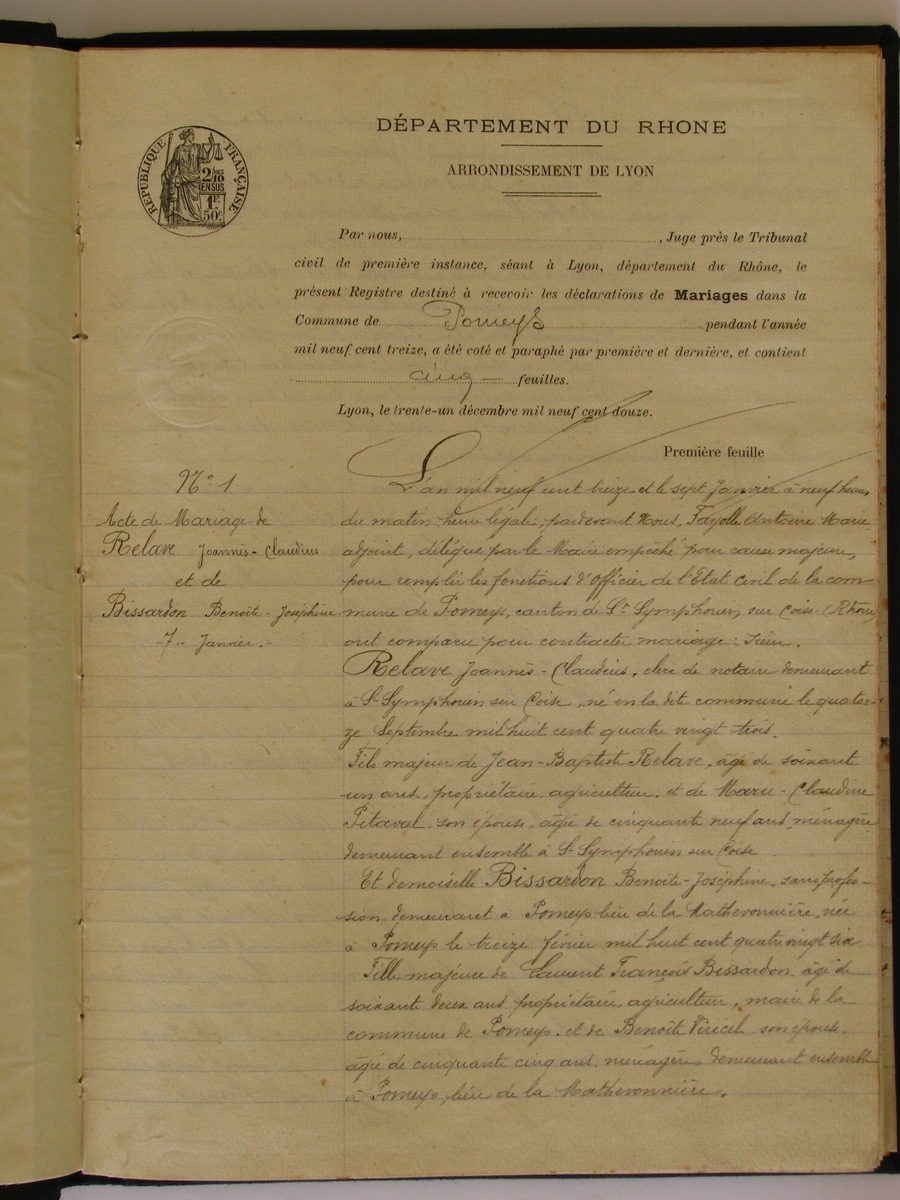 DÉPARTEMENT DU RHONE
ARRONDISSEMENT DE LYON
RÉPUBLIQUE FRANÇAISE
2/10
EN SUS
1F
50c
Par nous, , Juge près le Tribunal
civil de première instance, séant à Lyon, département du Rhône, le
présent Registre destiné à recevoir les déclarations de Mariages dans la
Commune de Pomeys pendant l'année
mil neuf cent treize, a été coté et paraphé par première et dernière, et contient
cinq feuilles.
Lyon, le trente-un décembre mil neuf cent douze.
Première feuille
N° 1
Acte de Mariage de
Relave Joannès-Claudius
et de
Bissardon Benoîte-Joséphine
-7- Janvier.-
L'an mil neuf cent treize et le sept Janvier à neuf heures
du matin heure légale, pardevant Nous, Fayolle Antoine Marie
adjoint, délégué par le Maire empêché pour cause majeure,
pour remplir les fonctions d'Officier de l'Etat Civil de la com-
mune de Pomeys, canton de St Symphorien sur Coise (Rhône)
ont comparu pour contracter mariage: sieur.
Relave Joannès-Claudius, clerc de notaire demeurant
à St Symphorien sur Coise, né en la dite commune le quator-
ze Septembre mil huit cent quatre vingt trois.
Fils majeur de Jean-Baptiste Relave, âgé de soixante
un ans, propriétaire agriculteur, et de Marie-Claudine
Pitaval son épouse, âgée de cinquante neuf ans, ménagère
demeurant ensemble à St Symphorien sur Coise
Et demoiselle Bissardon Benoîte-Joséphine, sans profes-
sion demeurant à Pomeys lieu de la Mathevonnière, née
à Pomeys le treize février mil huit cent quatre vingt six
Fille majeure de Laurent François Bissardon âgé de
soixante deux ans propriétaire agriculteur, maire de la
commune de Pomeys, et de Benoîte Viricel son épouse.
âgée de cinquante cinq ans, ménagère demeurant ensemble
à Pomeys, lieu de la Mathevonnière.